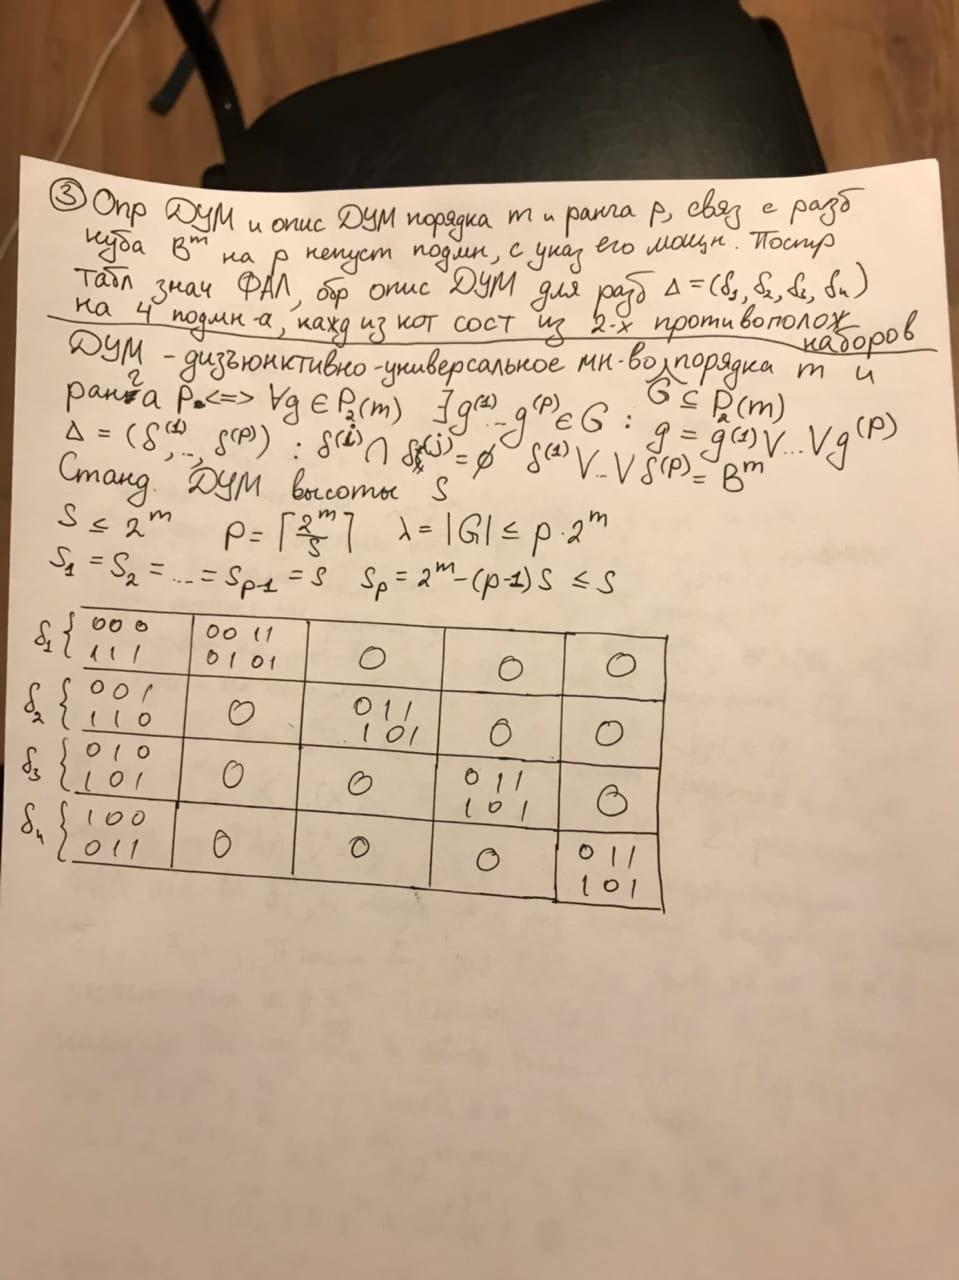 ③ Опр ДУМ и опис ДУМ порядка m и ранга p, связ с разб
куба Bᵐ на p непуст подмн, с указ его мощн. Постр
Табл знач ФАЛ, обр опис ДУМ для разб Δ = (δ₁, δ₂, δ₃, δ₄)
на 4 подмн-а, кажд из кот сост из 2-х противополож
наборов
ДУМ - дизъюнктивно-универсальное мн-во порядка m и
G ⊆ P₂(m)
ранга p. <=> ∀g ∈ P₂(m) ∃g⁽¹⁾...g⁽ᵖ⁾ ∈ G : g = g⁽¹⁾V...Vg⁽ᵖ⁾
Δ = (δ⁽¹⁾,.., δ⁽ᵖ⁾) : δ⁽ⁱ⁾ ∩ δ⁽ʲ⁾ = ∅ δ⁽¹⁾V..Vδ⁽ᵖ⁾ = Bᵐ
Станд. ДУМ высоты S
S ≤ 2ᵐ p = ⌈2ᵐ/S⌉ λ = |G| ≤ p·2ᵐ
S₁ = S₂ = ... = Sₚ₋₁ = S Sₚ = 2ᵐ-(p-1)S ≤ S
δ₁ { 0 0 0 00 11 0 0 0
1 1 1 01 01
δ₂ { 0 0 1 0 0 1 1 0 0
1 1 0 1 0 1
δ₃ { 0 1 0 0 0 0 1 1 0
1 0 1 1 0 1
δ₄ { 1 0 0 0 0 0 0 1 1
0 1 1 1 0 1